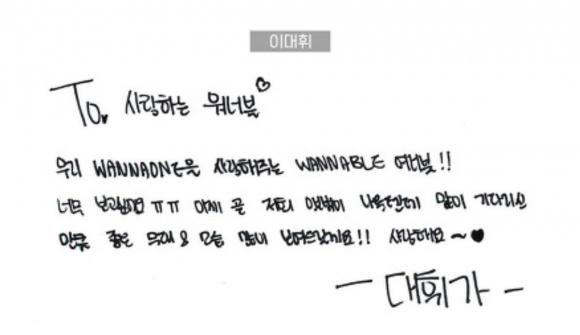 이대휘
To. 사랑하는 워너블♡
우리 WANNAONE을 사랑해주는 WANNABLE 여러분!!
너무 보고싶어요 ㅠㅠ 이제 곧 저희 앨범이 나올텐데 많이 기다리신
만큼 좋은 무대 & 모습 많이 보여드릴게요!! 사랑해요~♥
- 대휘가 -